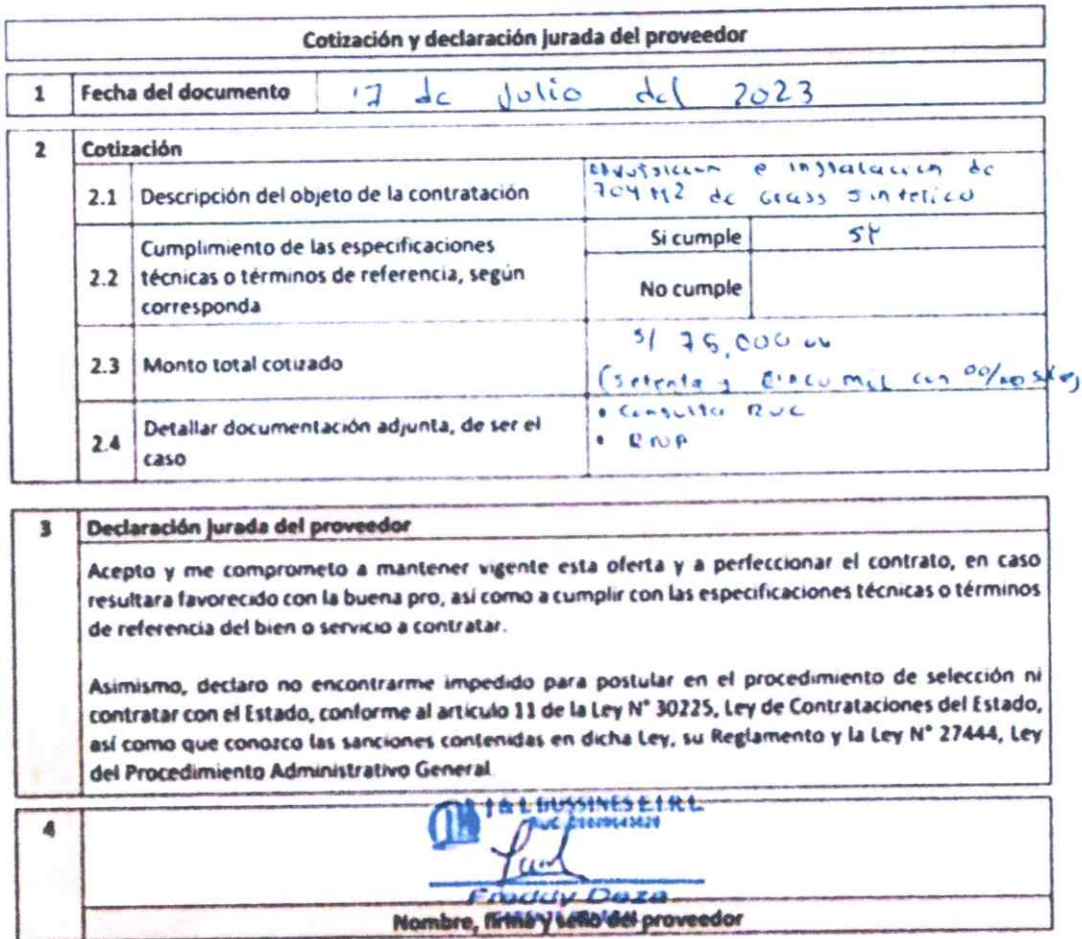 Cotización y declaración jurada del proveedor
1 Fecha del documento 17 de Julio del 2023
2 Cotización
2.1 Descripción del objeto de la contratación
e instalación de
704 M2 de Grass Sintetico
2.2 Cumplimiento de las especificaciones
técnicas o términos de referencia, según
corresponda
Si cumple SI
No cumple
2.3 Monto total cotizado
S/ 75,000
(Setenta y cinco mil con 00/100
2.4 Detallar documentación adjunta, de ser el
caso
• Consulta RUC
• RNP
3 Declaración jurada del proveedor
Acepto y me comprometo a mantener vigente esta oferta y a perfeccionar el contrato, en caso
resultara favorecido con la buena pro, así como a cumplir con las especificaciones técnicas o términos
de referencia del bien o servicio a contratar.
Asimismo, declaro no encontrarme impedido para postular en el procedimiento de selección ni
contratar con el Estado, conforme al artículo 11 de la Ley N° 30225, Ley de Contrataciones del Estado,
así como que conozco las sanciones contenidas en dicha Ley, su Reglamento y la Ley N° 27444, Ley
del Procedimiento Administrativo General.
4
& L BUSSINES E.I.R.L.
RUC
Freddy Daza
Nombre, firma y sello del proveedor